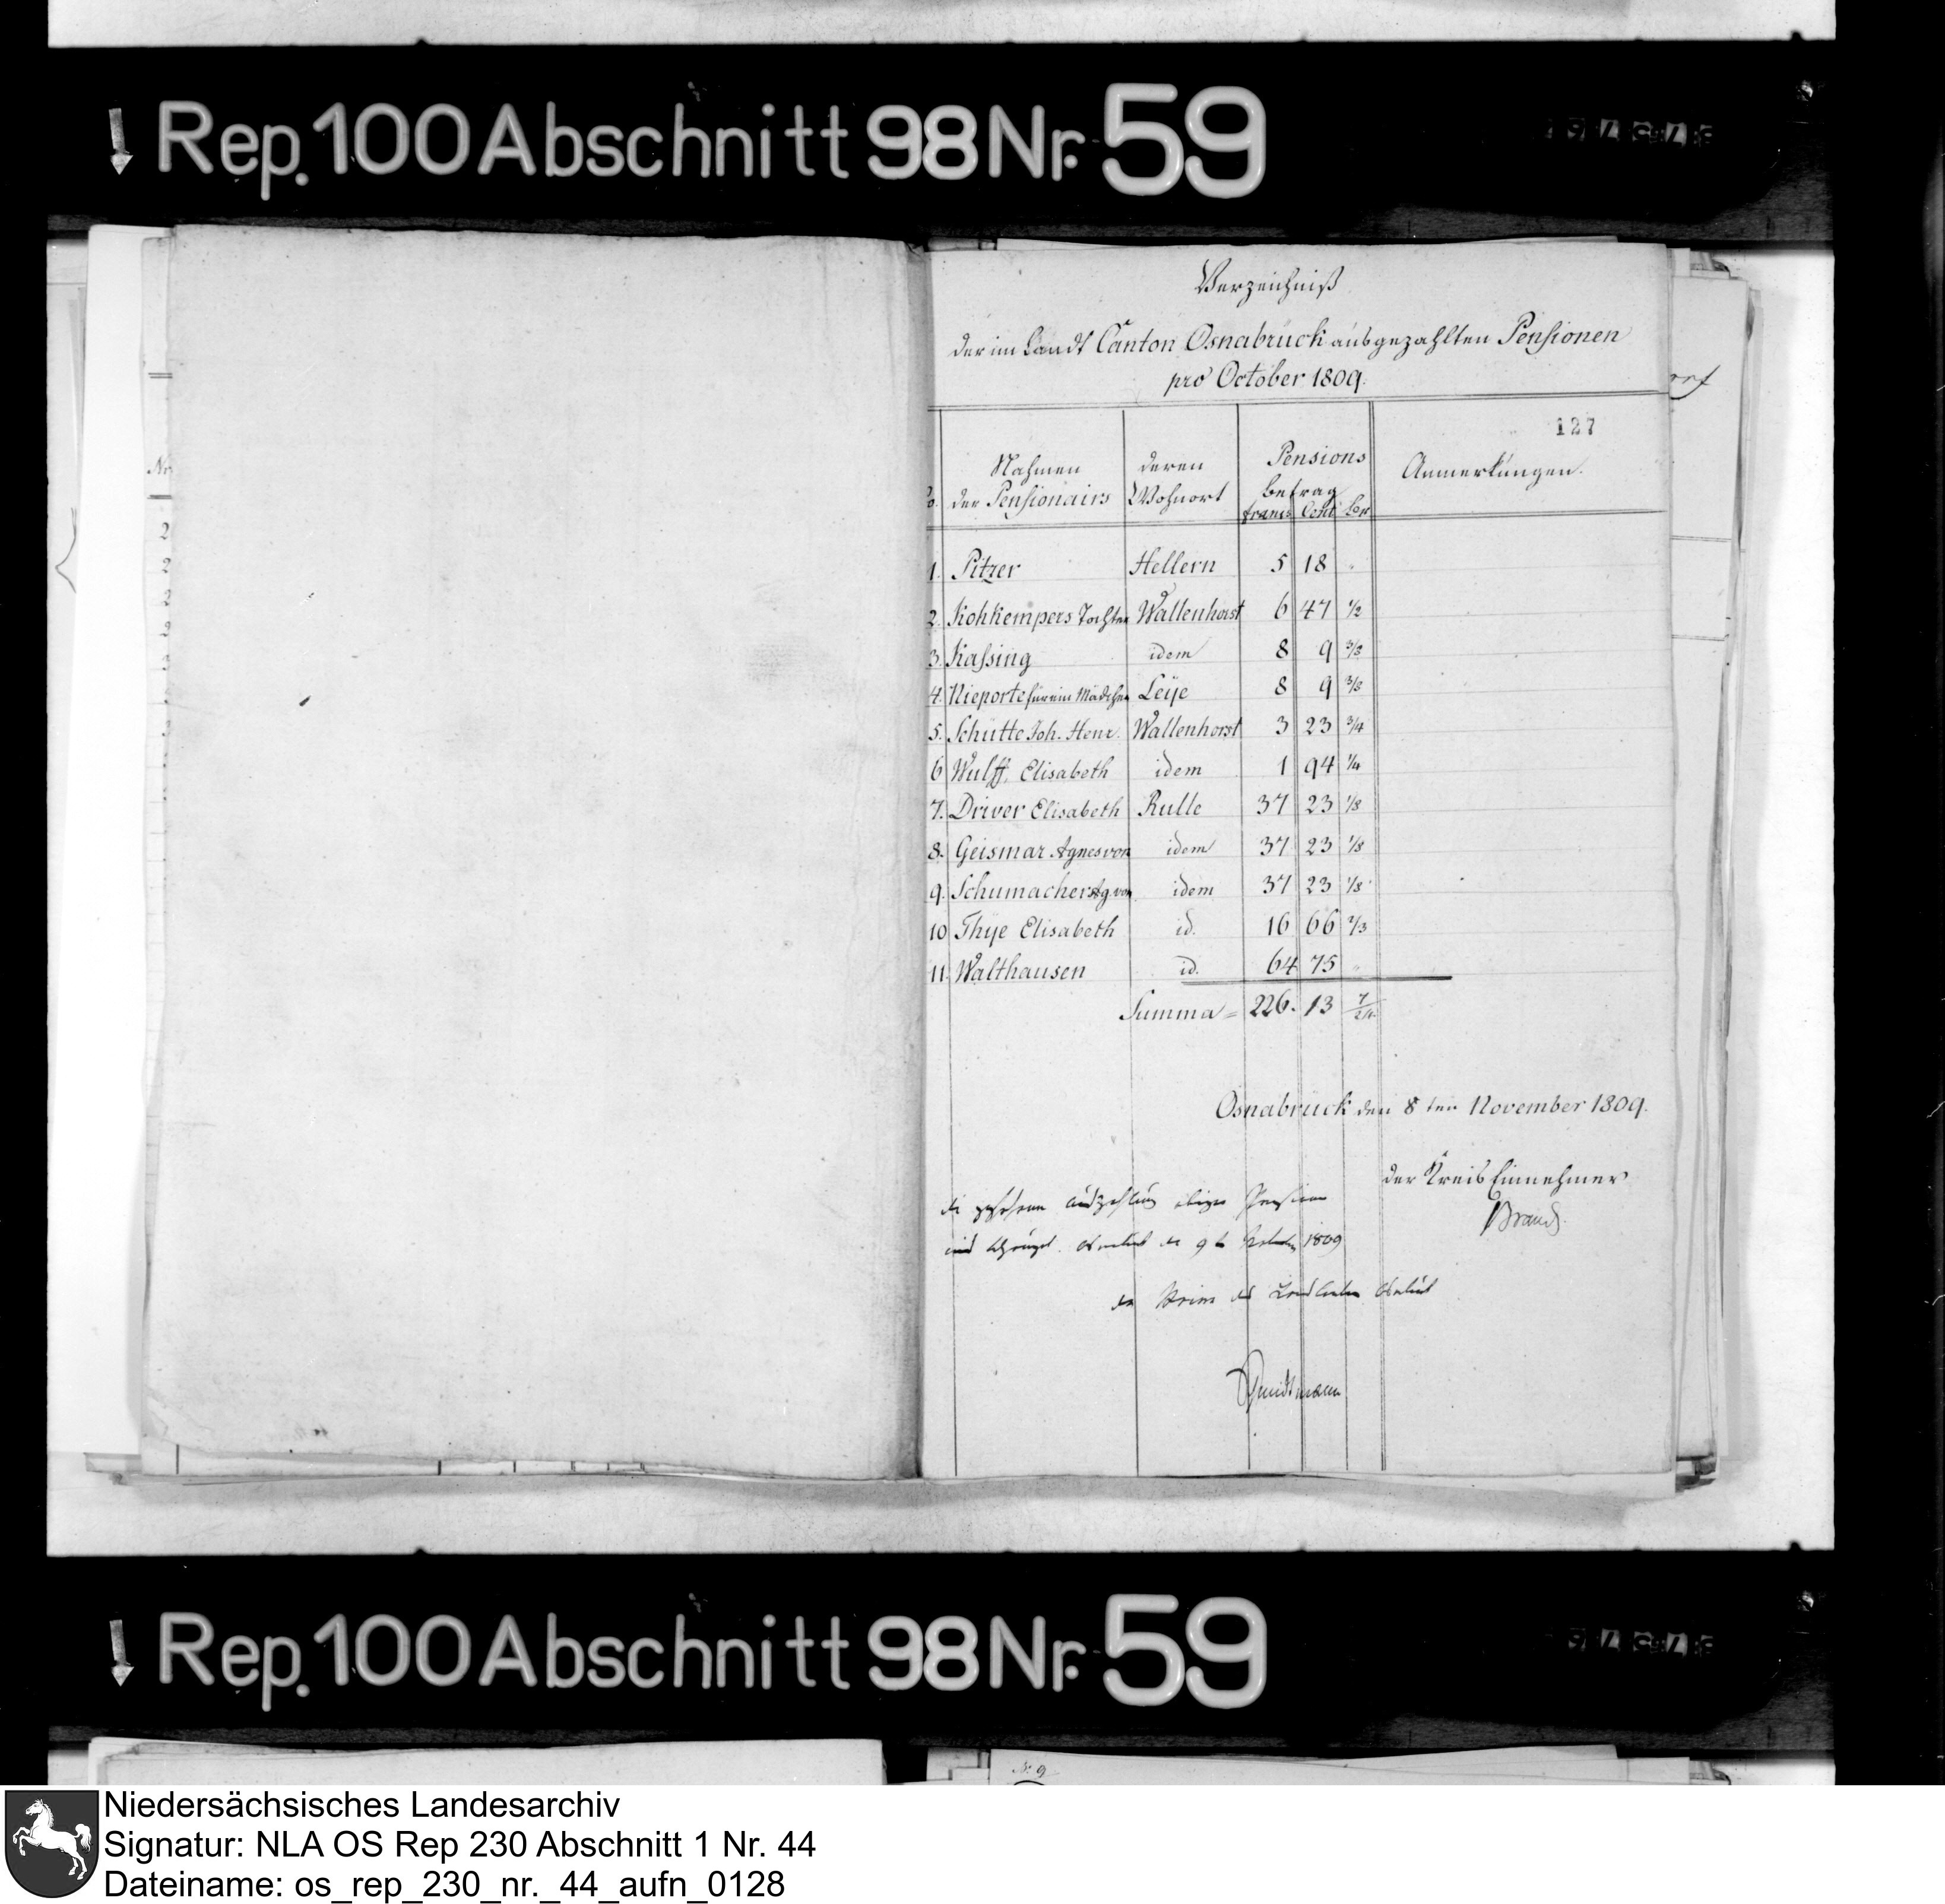 Rep. 100 Abschnitt 98 Nr. 59
Verzeichniß
der im Landt Canton Osnabrück ausgezahlten Pensionen
pro October 1809.
127
No. Nahmen der Pensionairs deren Wohnort Pensions betrag Anmerkungen.
francs Cent br
1. Pitzer Hellern 5 18 "
2. Kohkempers Tochter Wallenhorst 6 47 1/2
3. Kaßing idem 8 9 3/8
4. Nieporte für ein Mädchen Leye 8 9 3/8
5. Schütte Joh. Henr. Wallenhorst 3 23 3/4
6 Wulff, Elisabeth idem 1 94 1/4
7. Driver Elisabeth Rulle 37 23 1/8
8. Geismar Agnes von idem 37 23 1/8
9. Schumacher Ag. von idem 37 23 1/8
10 Thye Elisabeth id. 16 66 2/3
11. Walthausen id. 64 75 "
Summa = 226. 13 7/24
Osnabrück den 8ten November 1809.
der Kreis Einnehmer
Brand.
die geschehene Auszahlung obiger Pension
wird 1809
der Maire des Land Canton Osnabrück
Rep. 100 Abschnitt 98 Nr. 59
N. 9
Niedersächsisches Landesarchiv
Signatur: NLA OS Rep 230 Abschnitt 1 Nr. 44
Dateiname: os_rep_230_nr._44_aufn_0128